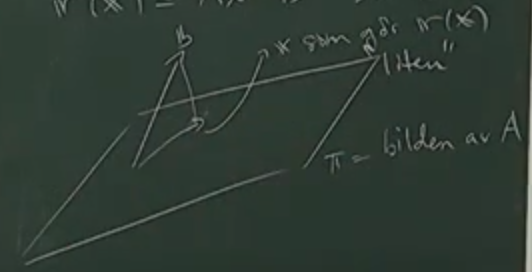 r(x) =
b
x som gör r(x)
"liten"
π = bilden av A